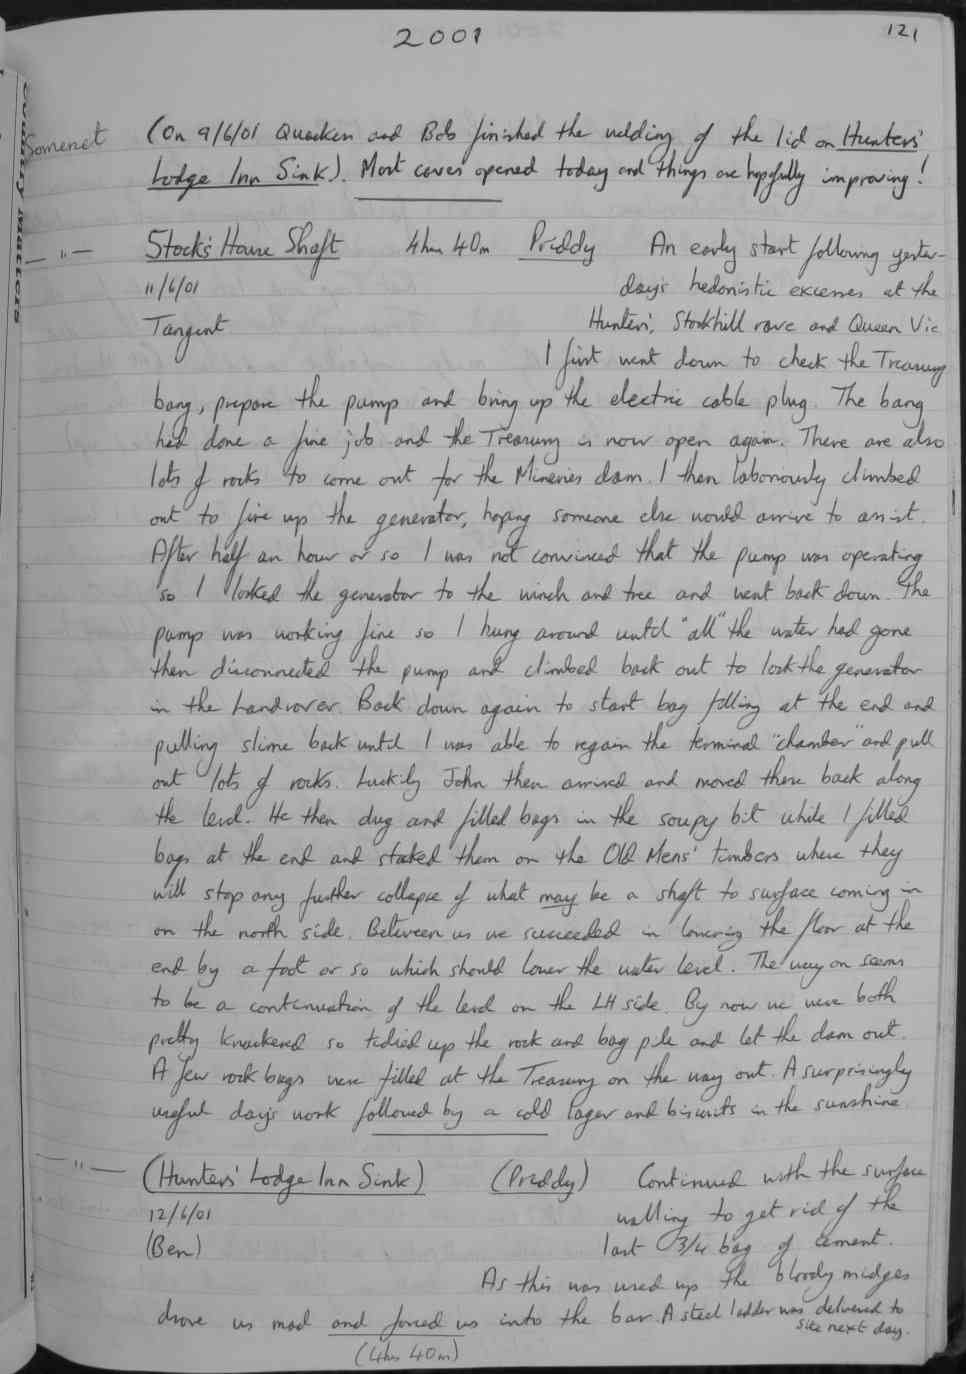 2001
121
Somerset
(On 9/6/01 Quackers and Bob finished the welding of the lid on Hunters'
Lodge Inn Sink). Most caves opened today and things are hopefully improving!
— " — Stock's House Shaft 4hrs 40m Priddy An early start following yester-
11/6/01 day's hedonistic excesses at the
Tangent Hunters', Stockhill rave and Queen Vic
I first went down to check the Treasury
bang, prepare the pump and bring up the electric cable plug. The bang
had done a fine job and the Treasury is now open again. There are also
lots of rocks to come out for the Mineries dam. I then laboriously climbed
out to fire up the generator, hoping someone else would arrive to assist.
After half an hour or so I was not convinced that the pump was operating
so I locked the generator to the winch and tree and went back down. The
pump was working fine so I hung around until "all" the water had gone
then disconnected the pump and climbed back out to lock the generator
in the Landrover. Back down again to start bag filling at the end and
pulling slime back until I was able to regain the terminal "chamber" and pull
out lots of rocks. Luckily John then arrived and moved these back along
the level. He then dug and filled bags in the soupy bit while I filled
bags at the end and stacked them on the Old Mens' timbers where they
will stop any further collapse of what may be a shaft to surface coming in
on the north side. Between us we succeeded in lowering the floor at the
end by a foot or so which should lower the water level. The way on seems
to be a continuation of the level on the LH side. By now we were both
pretty knackered so tidied up the rock and bag pile and let the dam out.
A few rock bags were filled at the Treasury on the way out. A surprisingly
useful day's work followed by a cold lager and biscuits in the sunshine.
— " — (Hunters' Lodge Inn Sink) (Priddy) Continued with the surface
12/6/01 walling to get rid of the
(Ben) last 3/4 bag of cement.
As this was used up the bloody midges
drove us mad and forced us into the bar. A steel ladder was delivered to
site next day.
(4hrs 40m)